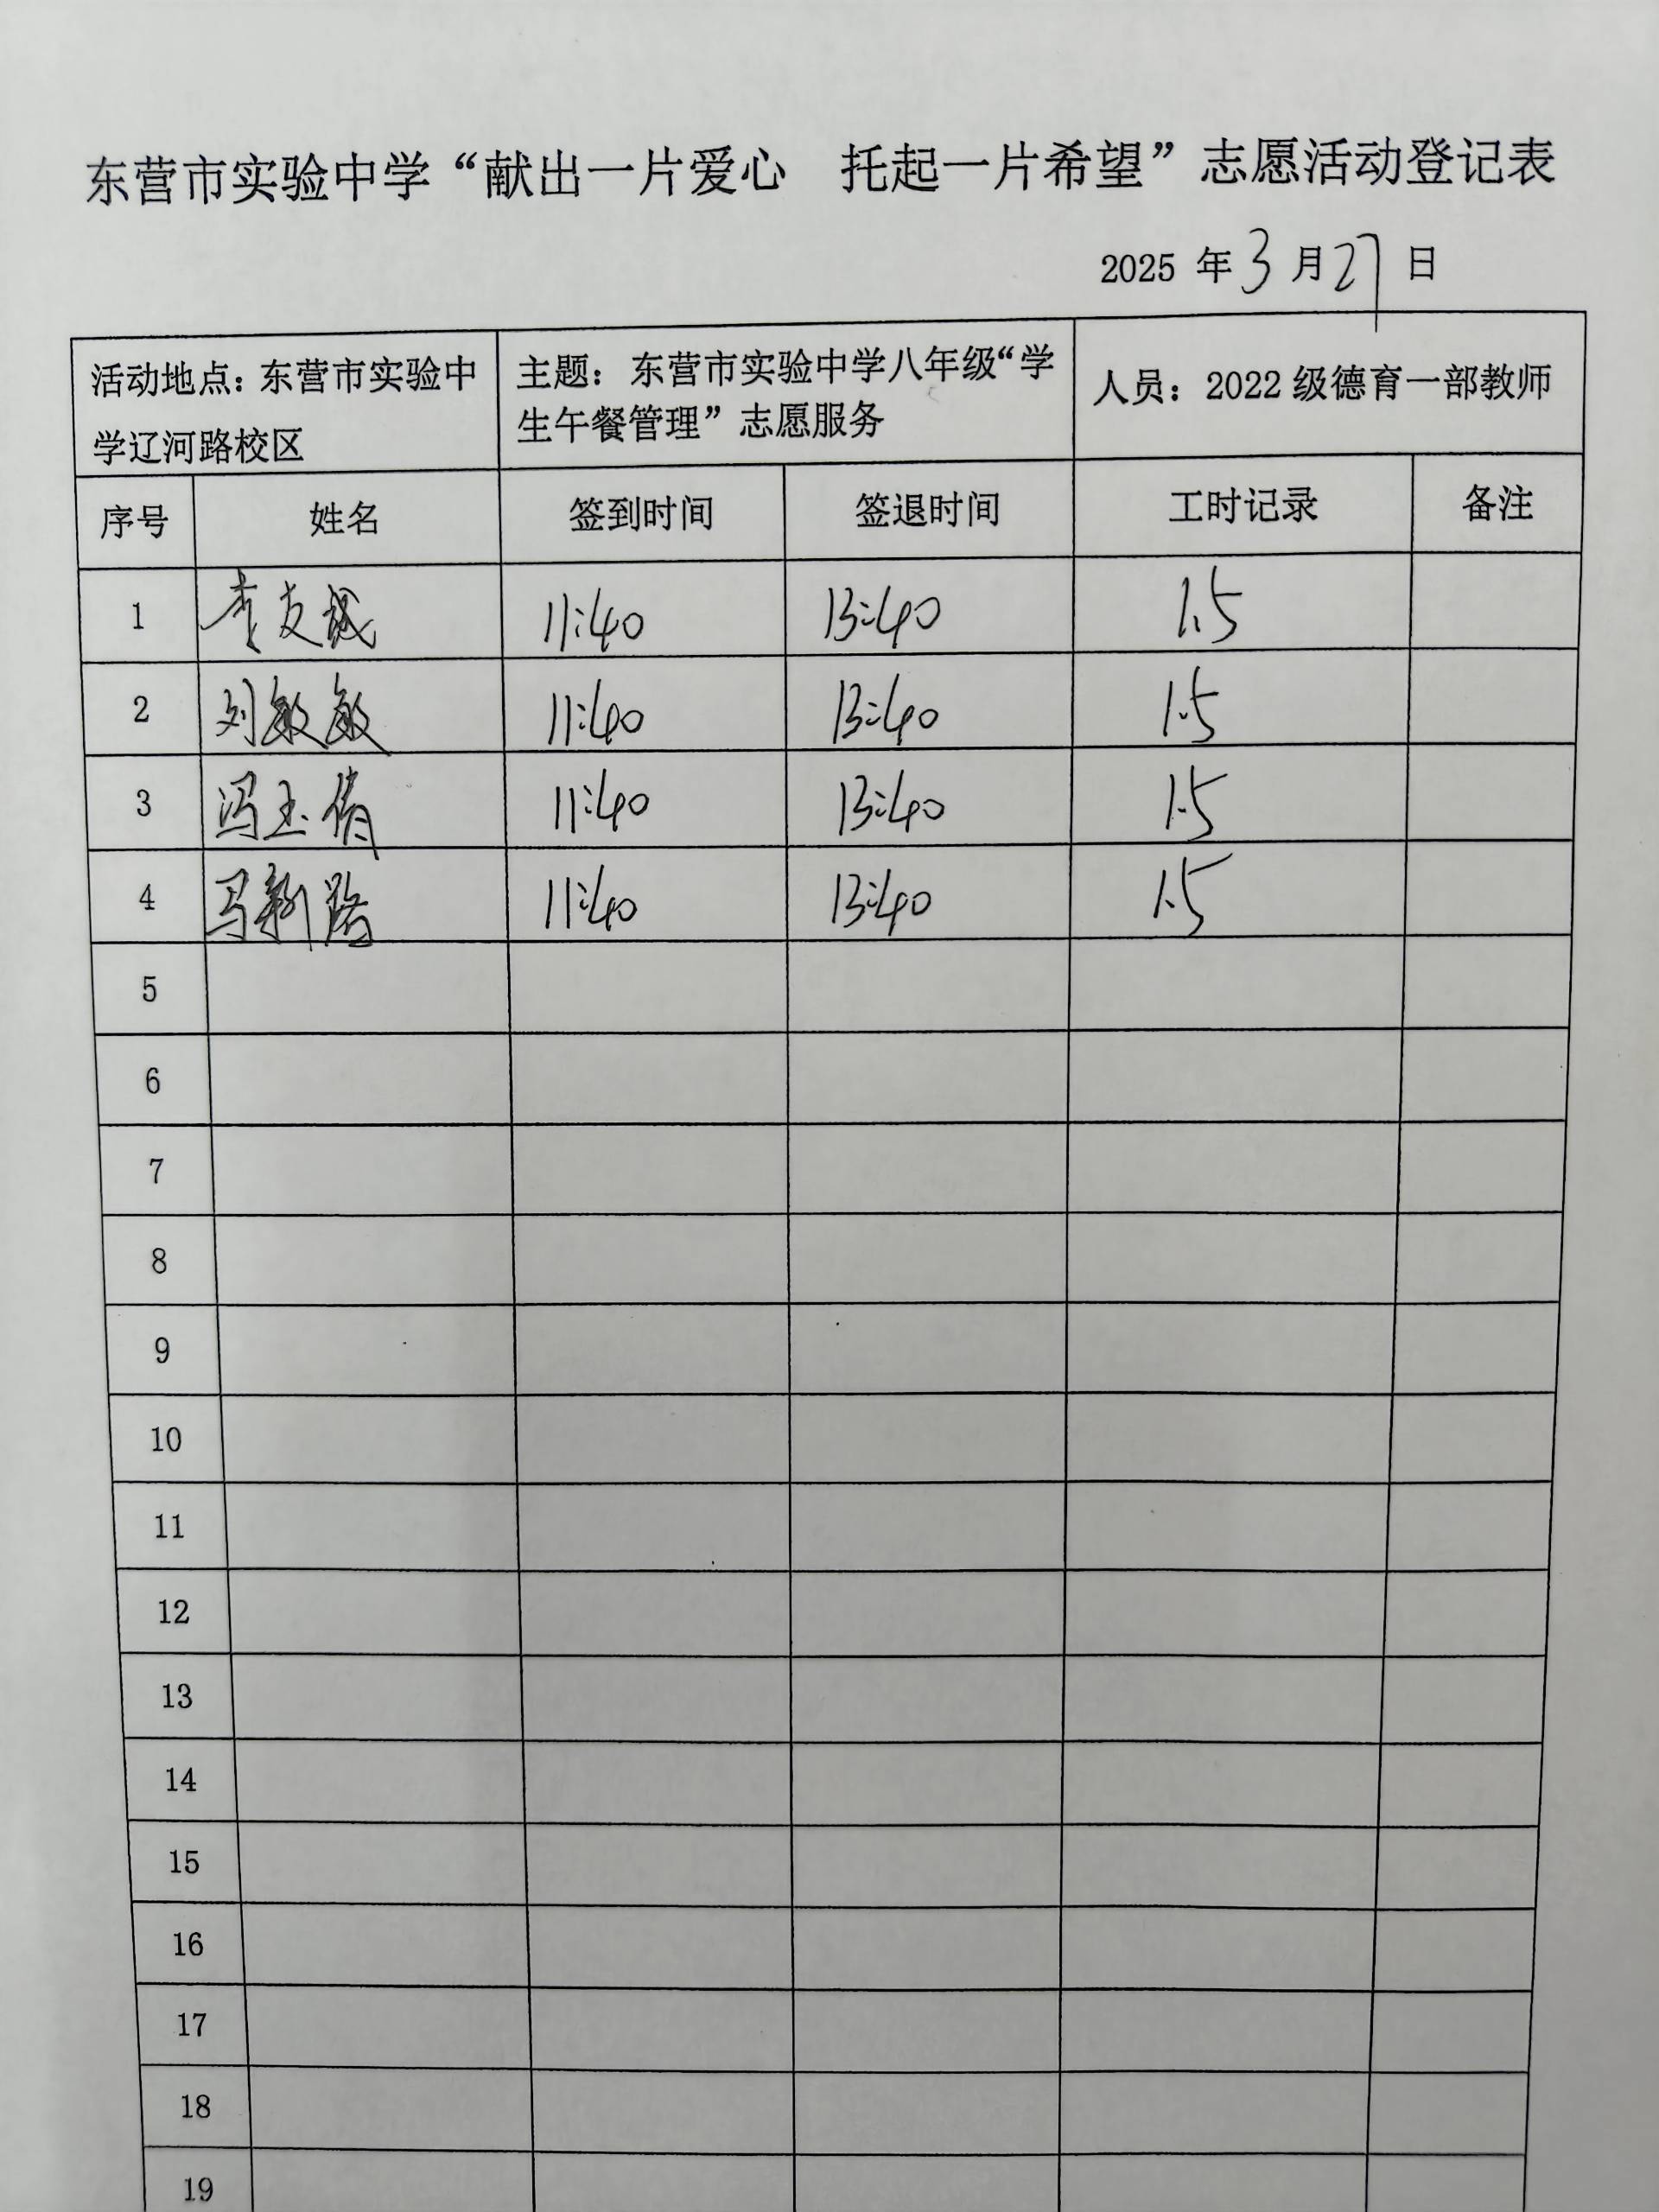 东营市实验中学“献出一片爱心 托起一片希望”志愿活动登记表
2025 年 3 月 27 日
活动地点：东营市实验中
学辽河路校区
主题：东营市实验中学八年级“学
生午餐管理”志愿服务
人员：2022 级德育一部教师
序号 姓名 签到时间 签退时间 工时记录 备注
1 李 11:40 13:40 1.5
2 刘敏敏 11:40 13:40 1.5
3 冯玉倩 11:40 13:40 1.5
4 马新路 11:40 13:40 1.5
5
6
7
8
9
10
11
12
13
14
15
16
17
18
19